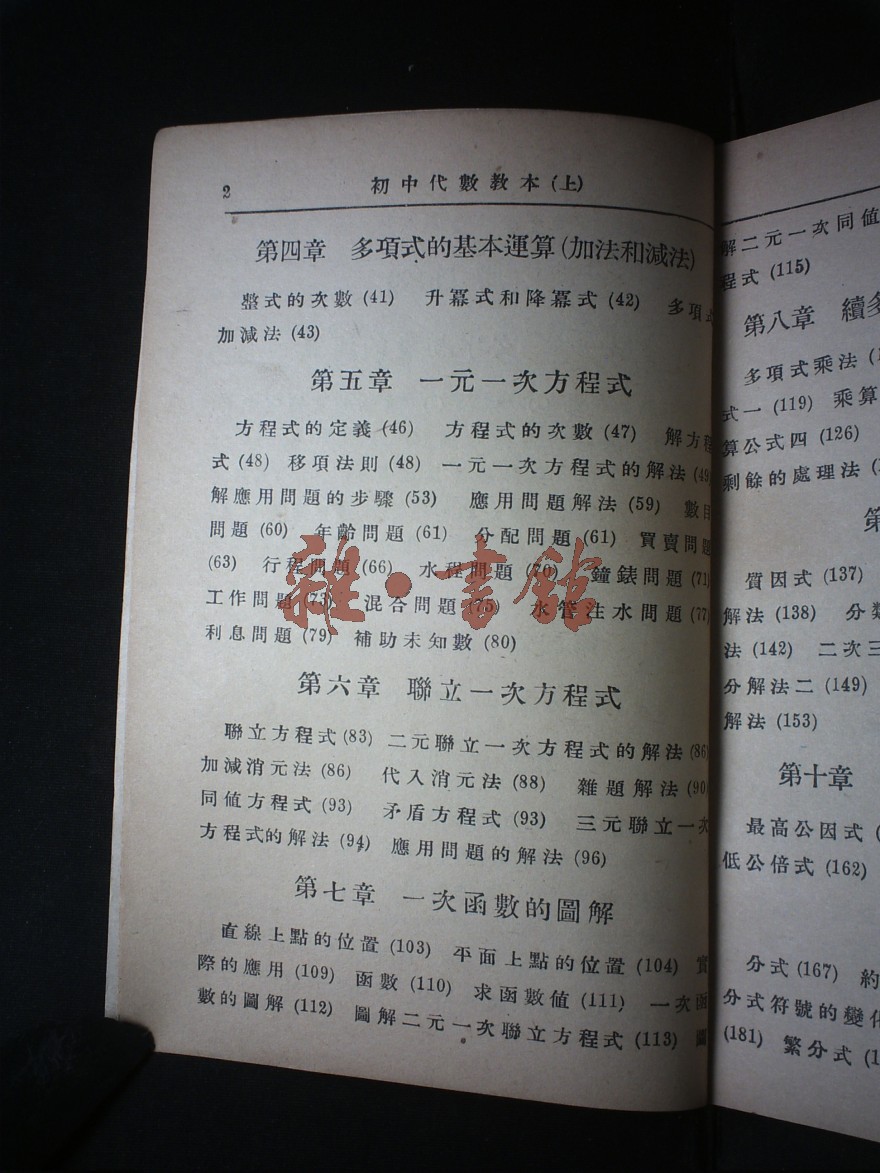 2 初中代數教本(上)
第四章 多項式的基本運算(加法和减法)
整式的次數(41) 升冪式和降冪式(42) 多項式
加减法(43)
第五章 一元一次方程式
方程式的定義(46) 方程式的次數(47) 解方程
式(48) 移項法則(48) 一元一次方程式的解法(49)
解應用問題的步驟(53) 應用問題解法(59) 數目
問題(60) 年齡問題(61) 分配問題(61) 買賣問題
(63) 行程問題(66) 水程問題(70) 鐘錶問題(71)
工作問題(73) 混合問題(75) 水管注水問題(77)
利息問題(79) 補助未知數(80)
第六章 聯立一次方程式
聯立方程式(83) 二元聯立一次方程式的解法(86)
加减消元法(86) 代入消元法(88) 雜題解法(90)
同値方程式(93) 矛盾方程式(93) 三元聯立一次
方程式的解法(94) 應用問題的解法(96)
第七章 一次函數的圖解
直線上點的位置(103) 平面上點的位置(104) 實
際的應用(109) 函數(110) 求函數値(111) 一次函
數的圖解(112) 圖解二元一次聯立方程式(113) 圖
雜·書館
解二元一次同値
程式(115)
第八章 續多
多項式乘法(1
式一(119) 乘算
算公式四(126)
剩餘的處理法(1
第
質因式(137)
解法(138) 分類
法(142) 二次三
分解法二(149)
解法(153)
第十章
最高公因式(
低公倍式(162)
分式(167) 約
分式符號的變化
(181) 繁分式(1